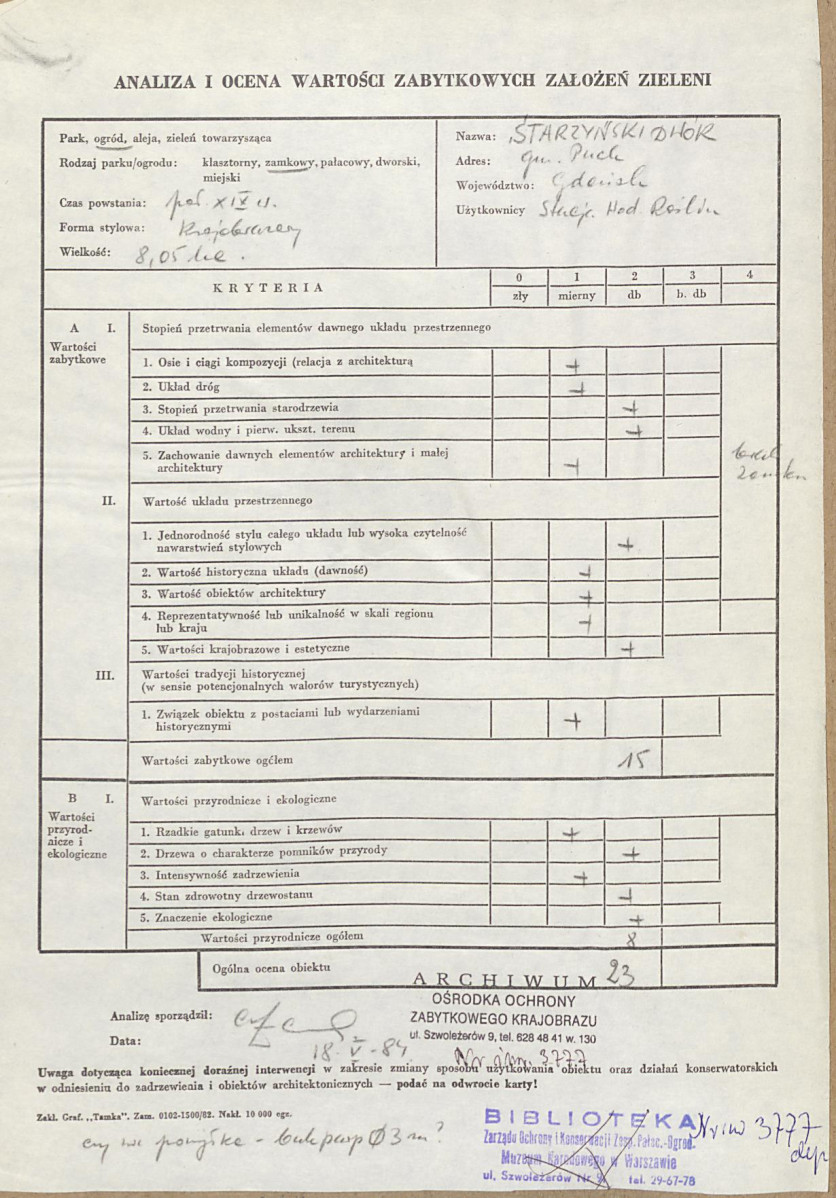 ANALIZA I OCENA WARTOŚCI ZABYTKOWYCH ZAŁOŻEŃ ZIELENI
Park, ogród, aleja, zieleń towarzysząca
Rodzaj parku/ogrodu: klasztorny, zamkowy, pałacowy, dworski, miejski
Czas powstania: poł. XIX w.
Forma stylowa: Krajobrazowy
Wielkość: 8,05 ha.
Nazwa: STARZYŃSKI DWÓR
Adres: gm. Puck
Województwo: Gdańsk
Użytkownicy Stacja Hod. Roślin
KRYTERIA
0 1 2 3 4
zły mierny db b. db
A I. Stopień przetrwania elementów dawnego układu przestrzennego
Wartości
zabytkowe
1. Osie i ciągi kompozycji (relacja z architekturą +
2. Układ dróg +
3. Stopień przetrwania starodrzewia +
4. Układ wodny i pierw. ukszt. terenu +
5. Zachowanie dawnych elementów architektury i małej
architektury +
II. Wartość układu przestrzennego
1. Jednorodność stylu całego układu lub wysoka czytelność
nawarstwień stylowych +
2. Wartość historyczna układu (dawność) +
3. Wartość obiektów architektury +
4. Reprezentatywność lub unikalność w skali regionu
lub kraju +
5. Wartości krajobrazowe i estetyczne +
III. Wartości tradycji historycznej
(w sensie potencjonalnych walorów turystycznych)
1. Związek obiektu z postaciami lub wydarzeniami
historycznymi +
Wartości zabytkowe ogółem 15
B I. Wartości przyrodnicze i ekologiczne
Wartości
przyrod-
nicze i
ekologiczne
1. Rzadkie gatunki drzew i krzewów +
2. Drzewa o charakterze pomników przyrody +
3. Intensywność zadrzewienia +
4. Stan zdrowotny drzewostanu +
5. Znaczenie ekologiczne +
Wartości przyrodnicze ogółem 8
Ogólna ocena obiektu 23
ARCHIWUM
OŚRODKA OCHRONY
ZABYTKOWEGO KRAJOBRAZU
ul. Szwoleżerów 9, tel. 628 48 41 w. 130
Nr inw. 3777
Analizę sporządził:
Data: 18-V-84
Uwaga dotycząca koniecznej doraźnej interwencji w zakresie zmiany sposobu użytkowania obiektu oraz działań konserwatorskich
w odniesieniu do zadrzewienia i obiektów architektonicznych — podać na odwrocie karty!
Zakł. Graf. „Tamka". Zam. 0102-1500/82. Nakł. 10 000 egz.
Ø 3 m?
BIBLIOTEKA
Zarządu Ochrony i Konserwacji Zesp. Pałac.-Ogrod.
Muzeum Narodowego w Warszawie
ul. Szwoleżerów Nr 9, tel. 29-67-78
Nr inw 3777
dep